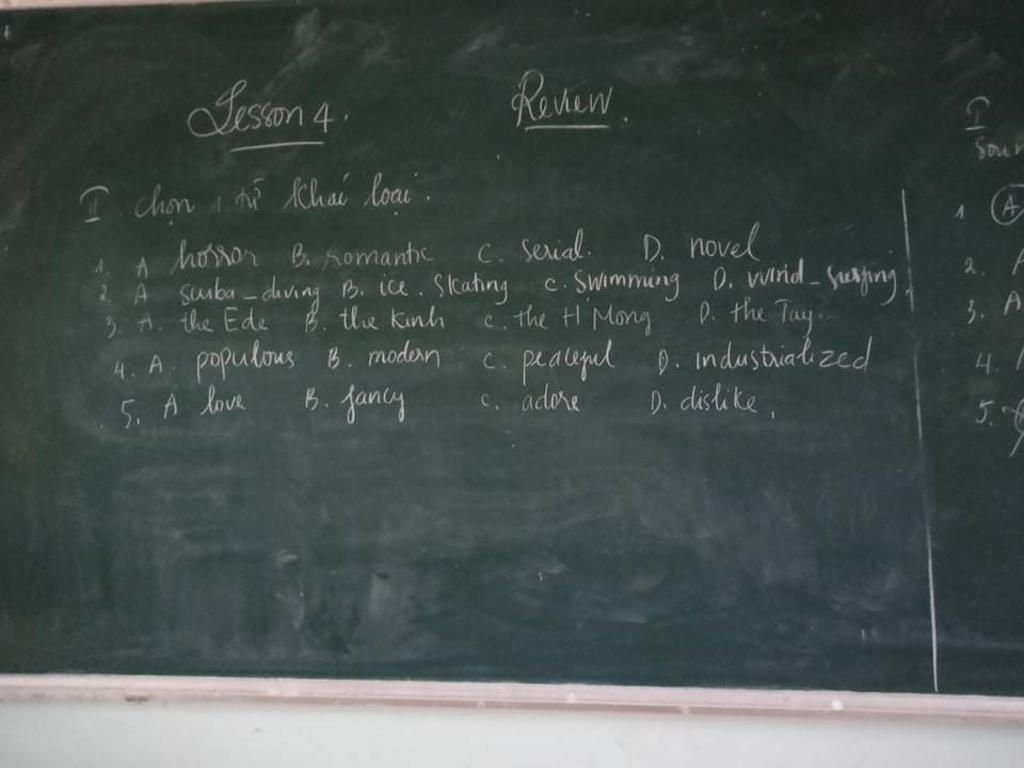 Lesson 4. Review.
II chọn 1 từ khác loại.
1. A horror B. romantic C. serial. D. novel
2. A suba-diving B. ice. Skating C. Swimming D. wind-surfing.
3. A. the Ede B. the Kinh C. the H'Mong D. the Tay.
4. A. populous B. modern C. peaceful D. industrialized
5. A love B. fancy C. adore D. dislike.
I
1 A
2. A
3. A
4.
5.